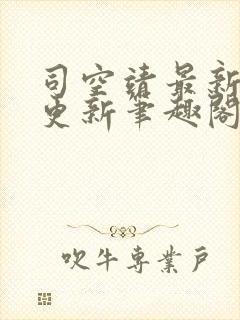 司空靖最新
更新笔趣阁
吹牛专業戶